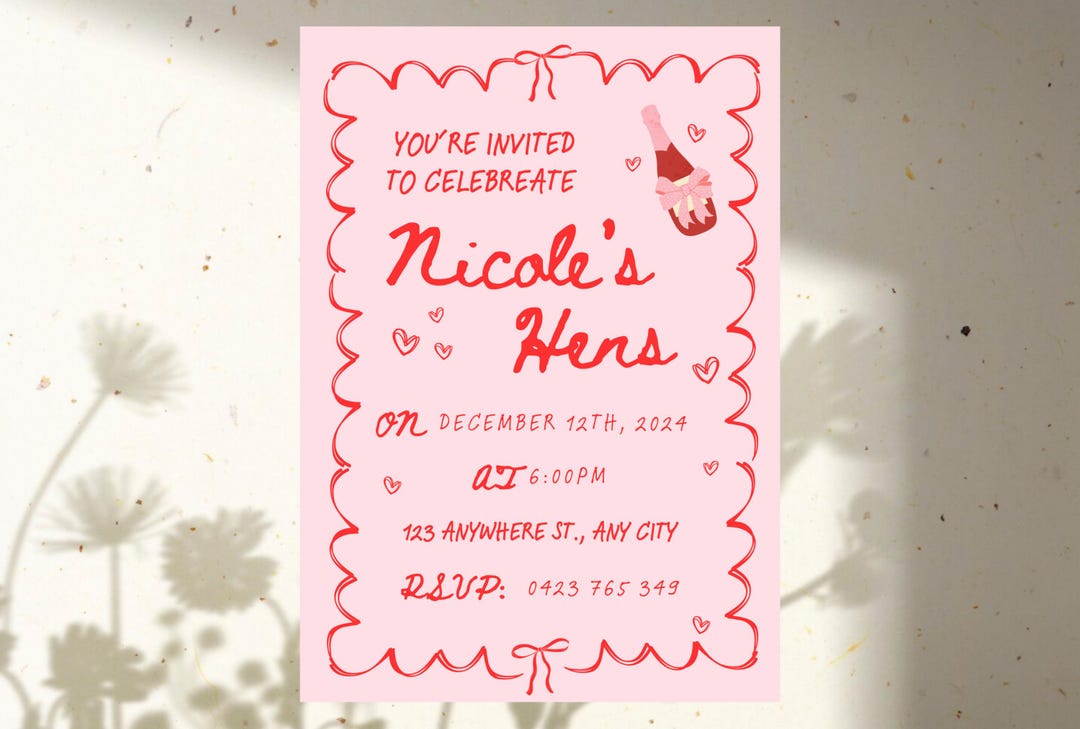 YOU'RE INVITED
TO CELEBREATE
Nicole's
Hens
ON DECEMBER 12TH, 2024
AT 6:00PM
123 ANYWHERE ST., ANY CITY
RSVP: 0423 765 349